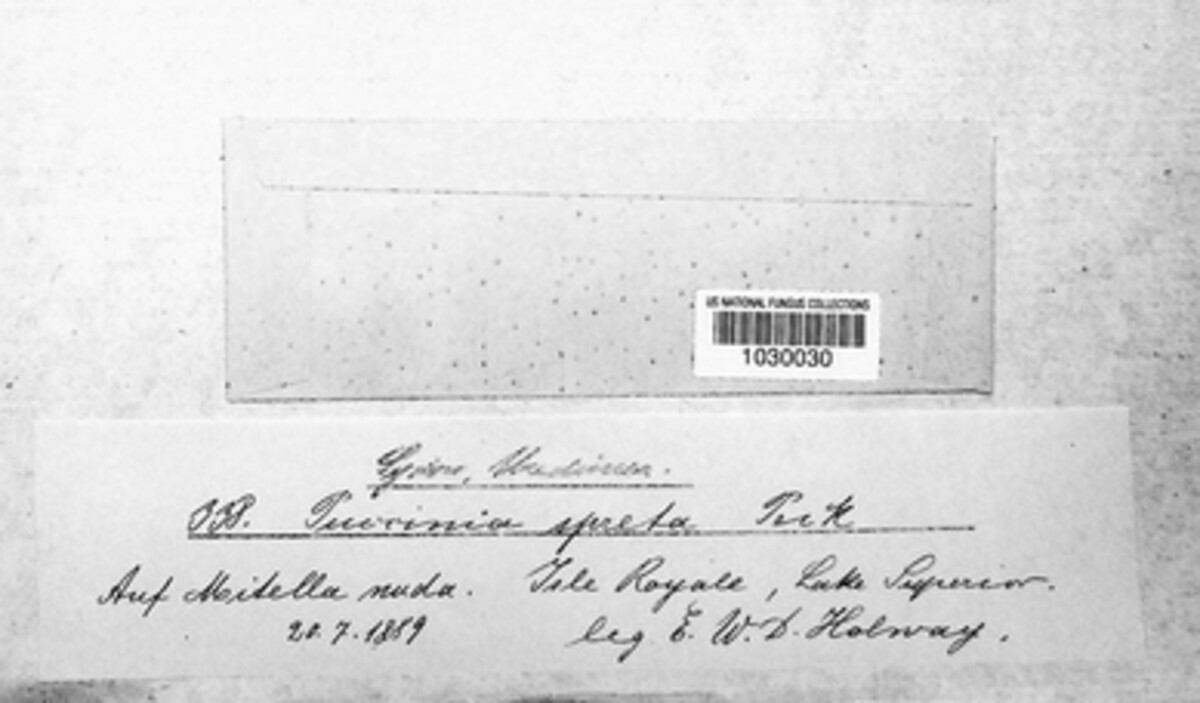 US NATIONAL FUNGUS COLLECTIONS
1030030
Sydow, Uredineen.
338. Puccinia spreta Peck
Auf Mitella nuda. Isle Royale, Lake Superior.
20.7.1889 leg. E. W. D. Holway.